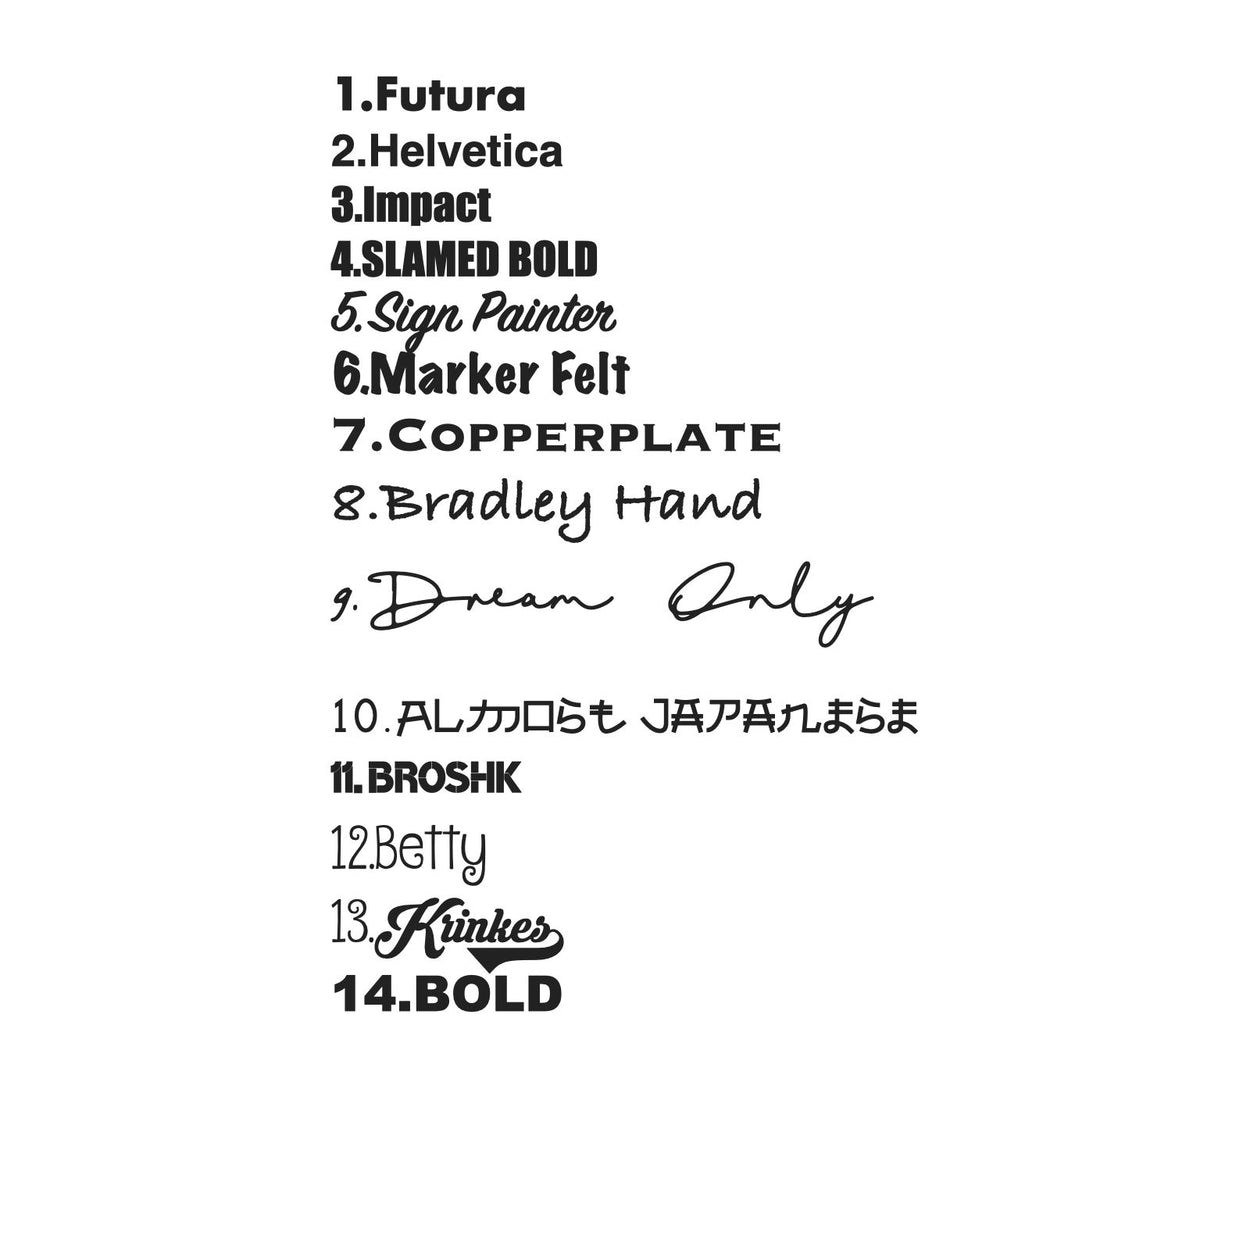 1.Futura
2.Helvetica
3.Impact
4.SLAMED BOLD
5.Sign Painter
6.Marker Felt
7.COPPERPLATE
8.Bradley Hand
9.Dream Only
10.ALMOST JAPANESE
11.BROSHK
12.Betty
13.Krinkes
14.BOLD